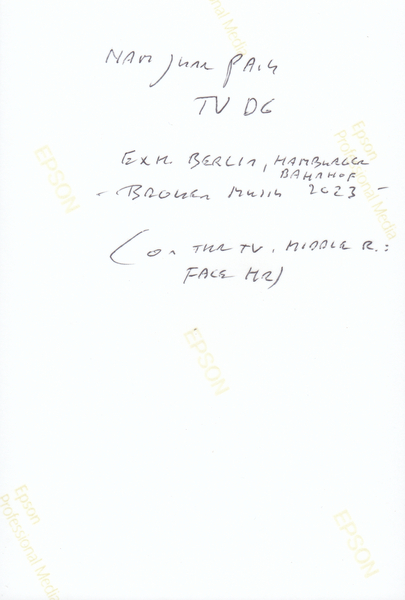 Professional Media
NAM JUNE PAIK
TV DG
Epson
Professional Media
EPSON
EXH. BERLIN, HAMBURGER
BAHNHOF
- BROKEN MUSIC 2023 -
(ON THE TV, MIDDLE R.:
FACE HR)
EPSON
Epson
Professional Media
EPSON